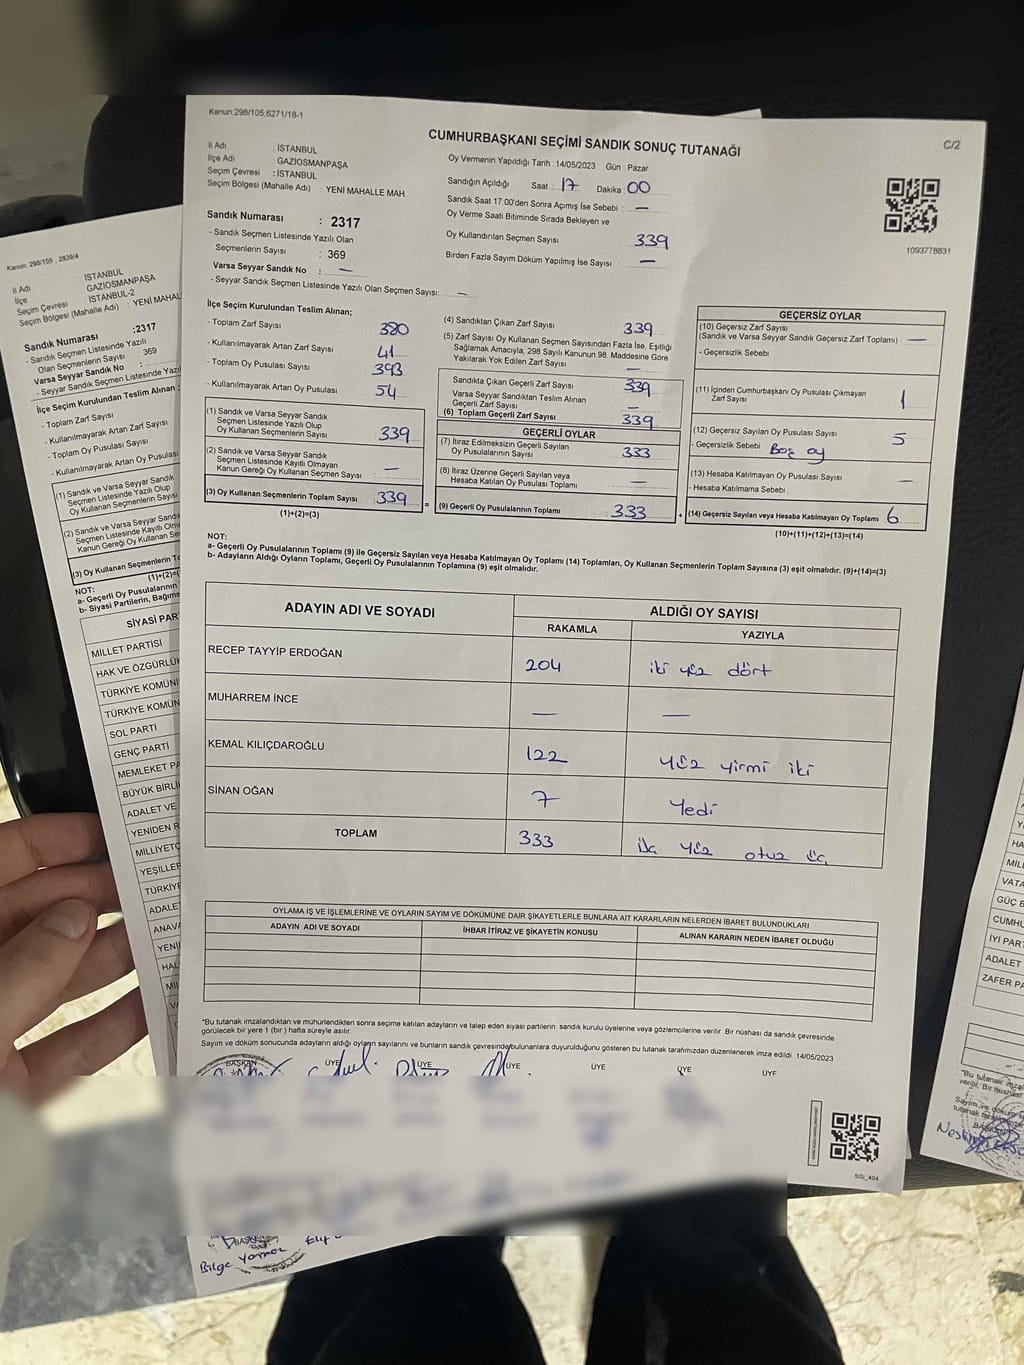 Kanun:298/105;6271/18-1
CUMHURBAŞKANI SEÇİMİ SANDIK SONUÇ TUTANAĞI
C/2
İl Adı : İSTANBUL
İlçe Adı : GAZİOSMANPAŞA
Seçim Çevresi : İSTANBUL
Seçim Bölgesi (Mahalle Adı) : YENİ MAHALLE MAH.
Oy Vermenin Yapıldığı Tarih :14/05/2023 Gün : Pazar
Sandığın Açıldığı Saat : 17 Dakika : 00
Sandık Saat 17:00'den Sonra Açımış İse Sebebi : —
Oy Verme Saati Bitiminde Sırada Bekleyen ve
Oy Kullandırılan Seçmen Sayısı 339
Birden Fazla Sayım Döküm Yapılmış İse Sayısı —
1093778631
Sandık Numarası : 2317
- Sandık Seçmen Listesinde Yazılı Olan
Seçmenlerin Sayısı : 369
Varsa Seyyar Sandık No : —
- Seyyar Sandık Seçmen Listesinde Yazılı Olan Seçmen Sayısı: —
İlçe Seçim Kurulundan Teslim Alınan;
- Toplam Zarf Sayısı 380
- Kullanılmayarak Artan Zarf Sayısı 41
- Toplam Oy Pusulası Sayısı 393
- Kullanılmayarak Artan Oy Pusulası 54
(1) Sandık ve Varsa Seyyar Sandık
Seçmen Listesinde Yazılı Olup
Oy Kullanan Seçmenlerin Sayısı 339
(2) Sandık ve Varsa Seyyar Sandık
Seçmen Listesinde Kayıtlı Olmayan
Kanun Gereği Oy Kullanan Seçmen Sayısı —
(3) Oy Kullanan Seçmenlerin Toplam Sayısı 339
(1)+(2)=(3)
(4) Sandıktan Çıkan Zarf Sayısı 339
(5) Zarf Sayısı Oy Kullanan Seçmen Sayısından Fazla İse, Eşitliği
Sağlamak Amacıyla, 298 Sayılı Kanunun 98. Maddesine Göre
Yakılarak Yok Edilen Zarf Sayısı —
Sandıkta Çıkan Geçerli Zarf Sayısı 339
Varsa Seyyar Sandıktan Teslim Alınan
Geçerli Zarf Sayısı —
(6) Toplam Geçerli Zarf Sayısı 339
GEÇERLİ OYLAR
(7) İtiraz Edilmeksizin Geçerli Sayılan
Oy Pusulalarının Sayısı 333
(8) İtiraz Üzerine Geçerli Sayılan veya
Hesaba Katılan Oy Pusulası Toplamı —
= (9) Geçerli Oy Pusulalarının Toplamı 333 +
GEÇERSİZ OYLAR
(10) Geçersiz Zarf Sayısı
(Sandık ve Varsa Seyyar Sandık Geçersiz Zarf Toplamı) —
- Geçersizlik Sebebi
(11) İçinden Cumhurbaşkanı Oy Pusulası Çıkmayan
Zarf Sayısı 1
(12) Geçersiz Sayılan Oy Pusulası Sayısı 5
- Geçersizlik Sebebi Boş oy
(13) Hesaba Katılmayan Oy Pusulası Sayısı —
- Hesaba Katılmama Sebebi
(14) Geçersiz Sayılan veya Hesaba Katılmayan Oy Toplamı 6
(10)+(11)+(12)+(13)=(14)
NOT:
a- Geçerli Oy Pusulalarının Toplamı (9) ile Geçersiz Sayılan veya Hesaba Katılmayan Oy Toplamı (14) Toplamları, Oy Kullanan Seçmenlerin Toplam Sayısına (3) eşit olmalıdır. (9)+(14)=(3)
b- Adayların Aldığı Oyların Toplamı, Geçerli Oy Pusulalarının Toplamına (9) eşit olmalıdır.
ADAYIN ADI VE SOYADI ALDIĞI OY SAYISI
RAKAMLA YAZIYLA
RECEP TAYYİP ERDOĞAN 204 iki yüz dört
MUHARREM İNCE — —
KEMAL KILIÇDAROĞLU 122 yüz yirmi iki
SİNAN OĞAN 7 Yedi
TOPLAM 333 üç yüz otuz üç
OYLAMA İŞ VE İŞLEMLERİNE VE OYLARIN SAYIM VE DÖKÜMÜNE DAİR ŞİKAYETLERLE BUNLARA AİT KARARLARIN NELERDEN İBARET BULUNDUKLARI
ADAYIN ADI VE SOYADI İHBAR İTİRAZ VE ŞİKAYETİN KONUSU ALINAN KARARIN NEDEN İBARET OLDUĞU
*Bu tutanak imzalandıktan ve mühürlendikten sonra seçime katılan adayların ve talep eden siyasi partilerin sandık kurulu üyelerine veya gözlemcilerine verilir. Bir nüshası da sandık çevresinde
görülecek bir yere 1 (bir) hafta süreyle asılır.
Sayım ve döküm sonucunda adayların aldığı oyların sayılarını ve bunların sandık çevresinde bulunanlara duyurulduğunu gösteren bu tutanak tarafımızdan düzenlenerek imza edildi. 14/05/2023
BAŞKAN ÜYE ÜYE ÜYE ÜYE ÜYE ÜYE
SSI_404
BAŞKAN
Bilge Yamaç
Elif
Kanun: 298/105 , 2839/4
İl Adı İSTANBUL
İlçe GAZİOSMANPAŞA
Seçim Çevresi İSTANBUL-2
Seçim Bölgesi (Mahalle Adı) : YENİ MAHAL
Sandık Numarası :2317
- Sandık Seçmen Listesinde Yazılı
Olan Seçmenlerin Sayısı : 369
Varsa Seyyar Sandık No :
- Seyyar Sandık Seçmen Listesinde Yazılı
İlçe Seçim Kurulundan Teslim Alınan ;
- Toplam Zarf Sayısı
- Kullanılmayarak Artan Zarf Sayısı
- Toplam Oy Pusulası Sayısı
- Kullanılmayarak Artan Oy Pusulası
(1) Sandık ve Varsa Seyyar Sandık
Seçmen Listesinde Yazılı Olup
Oy Kullanan Seçmenlerin Sayısı
(2) Sandık ve Varsa Seyyar Sandı
Seçmen Listesinde Kayıtlı Olm
Kanun Gereği Oy Kullanan Se
(3) Oy Kullanan Seçmenlerin To
(1)+(2)=(
NOT:
a- Geçerli Oy Pusulalarının
b- Siyasi Partilerin, Bağıms
SİYASİ PAR
MİLLET PARTİSİ
HAK VE ÖZGÜRLÜK
TÜRKİYE KOMÜNİ
TÜRKİYE KOMÜN
SOL PARTİ
GENÇ PARTİ
MEMLEKET PA
BÜYÜK BİRLİ
ADALET VE
YENİDEN R
MİLLİYETÇ
YEŞİLLER
TÜRKİYE
ADALE
ANAV
YENİ
HAL
Mİ
HA
MİL
VATA
GÜÇ B
CUMHU
İYİ PART
ADALET
ZAFER PA
*Bu tutanak im
verilir. Bir nüshas
Sayım ve
tutanak
BAŞKAN